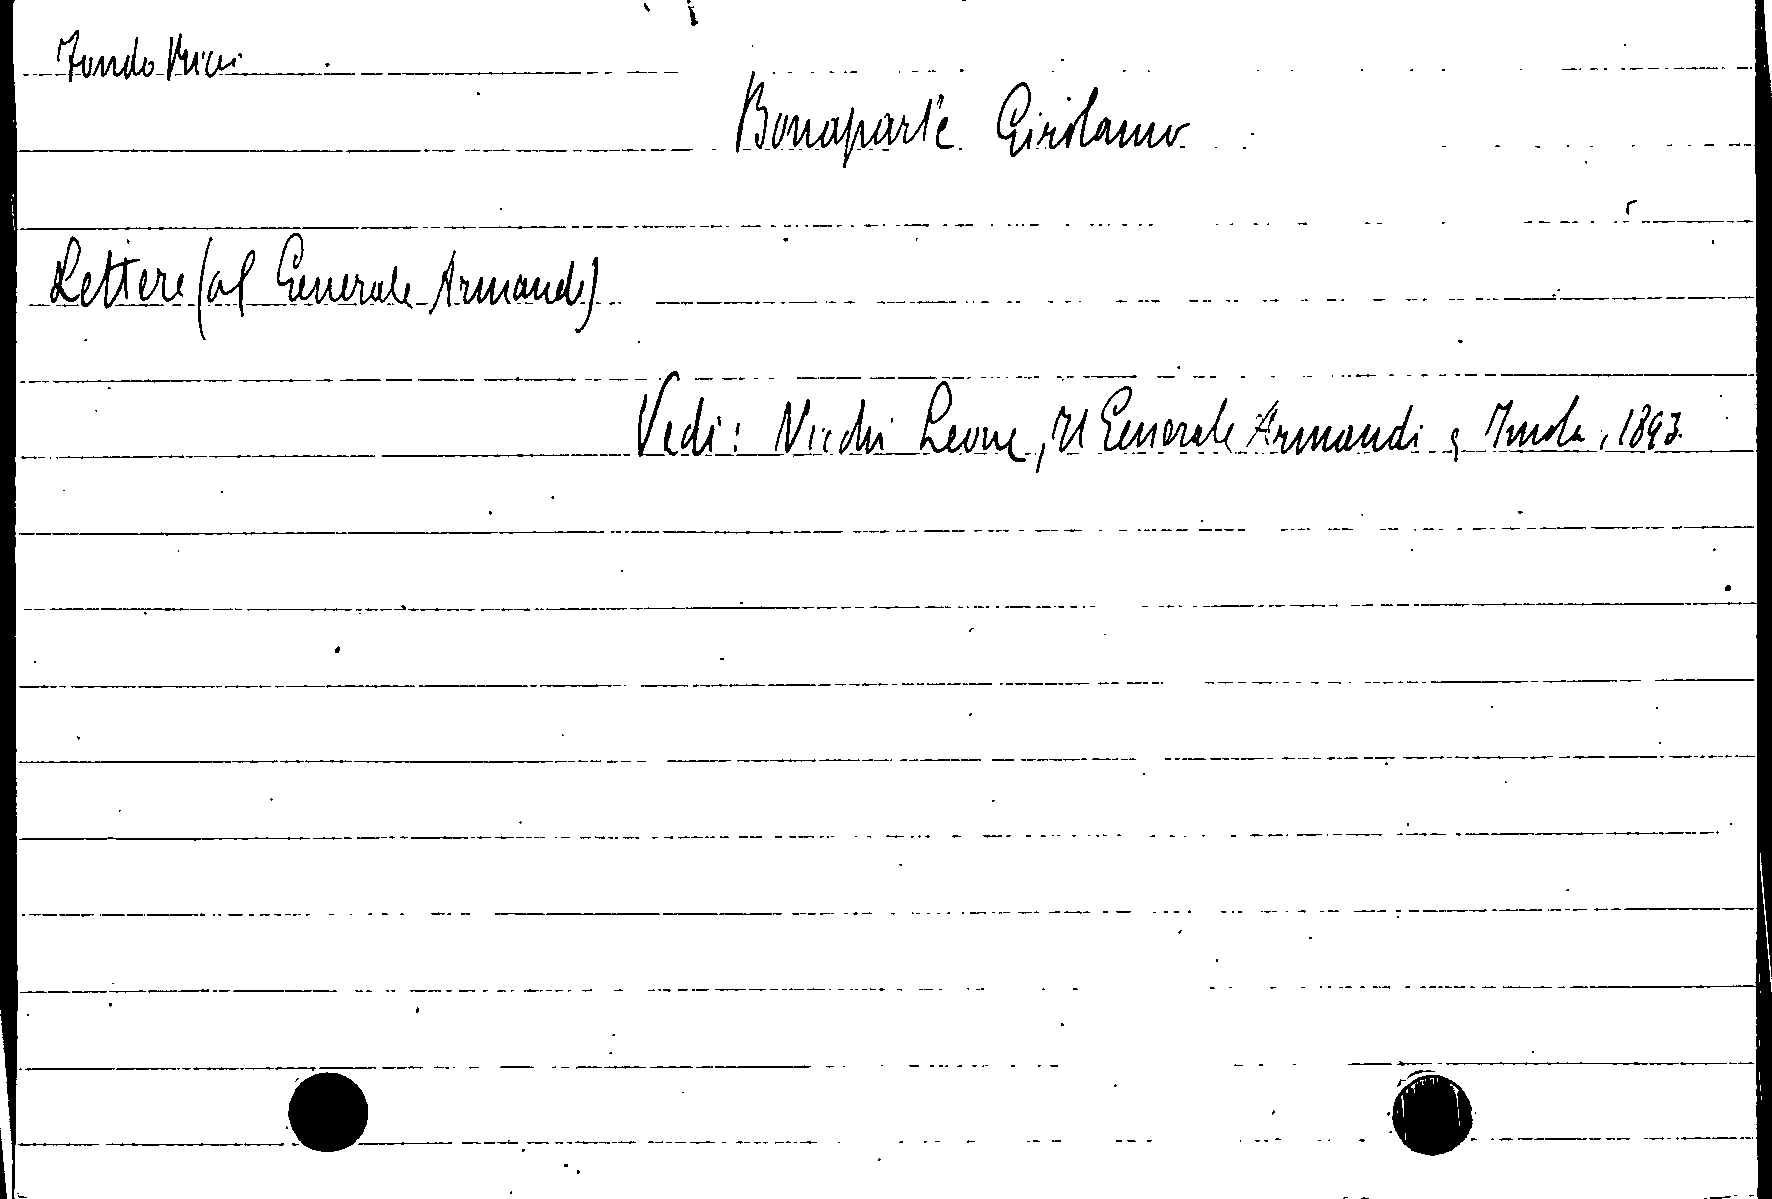 Fondo
Bonaparte Girolamo
Lettere (al Generale Armandi)
Vedi: Leone, Il Generale Armandi, Imola, 1893.